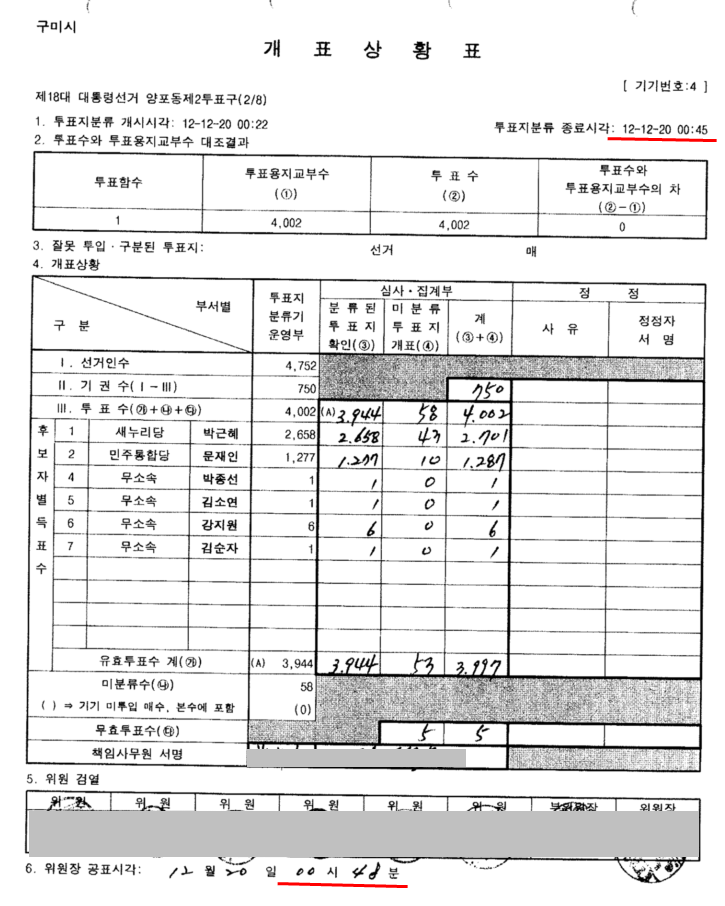 구미시
개 표 상 황 표
[ 기기번호:4 ]
제18대 대통령선거 양포동제2투표구(2/8)
1. 투표지분류 개시시각: 12-12-20 00:22
투표지분류 종료시각: 12-12-20 00:45
2. 투표수와 투표용지교부수 대조결과
투표함수 투표용지교부수 (①) 투 표 수 (②) 투표수와 투표용지교부수의 차 (②-①)
1 4,002 4,002 0
3. 잘못 투입·구분된 투표지: 선거 매
4. 개표상황
구 분 부서별 투표지 분류기 운영부 심사·집계부 정 정
분 류 된 투 표 지 확인(③) 미 분 류 투 표 지 개표(④) 계 (③+④) 사 유 정정자 서 명
Ⅰ. 선거인수 4,752
Ⅱ. 기 권 수(Ⅰ-Ⅲ) 750 750
Ⅲ. 투 표 수(㉮+㉯+㉰) 4,002 (A) 3.944 58 4.002
후보자별득표수
1 새누리당 박근혜 2,658 2.658 43 2.701
2 민주통합당 문재인 1,277 1.277 10 1.287
4 무소속 박종선 1 1 0 1
5 무소속 김소연 1 1 0 1
6 무소속 강지원 6 6 0 6
7 무소속 김순자 1 1 0 1
유효투표수 계(㉮) (A) 3,944 3.944 53 3.997
미분류수(㉯) 58
( ) ⇒ 기기 미투입 매수, 본수에 포함 (0)
무효투표수(㉰) 5 5
책임사무원 서명
5. 위원 검열
위 원 위 원 위 원 위 원 위 원 위 원 부위원장 위원장
6. 위원장 공표시각: 12 월 20 일 00 시 48 분